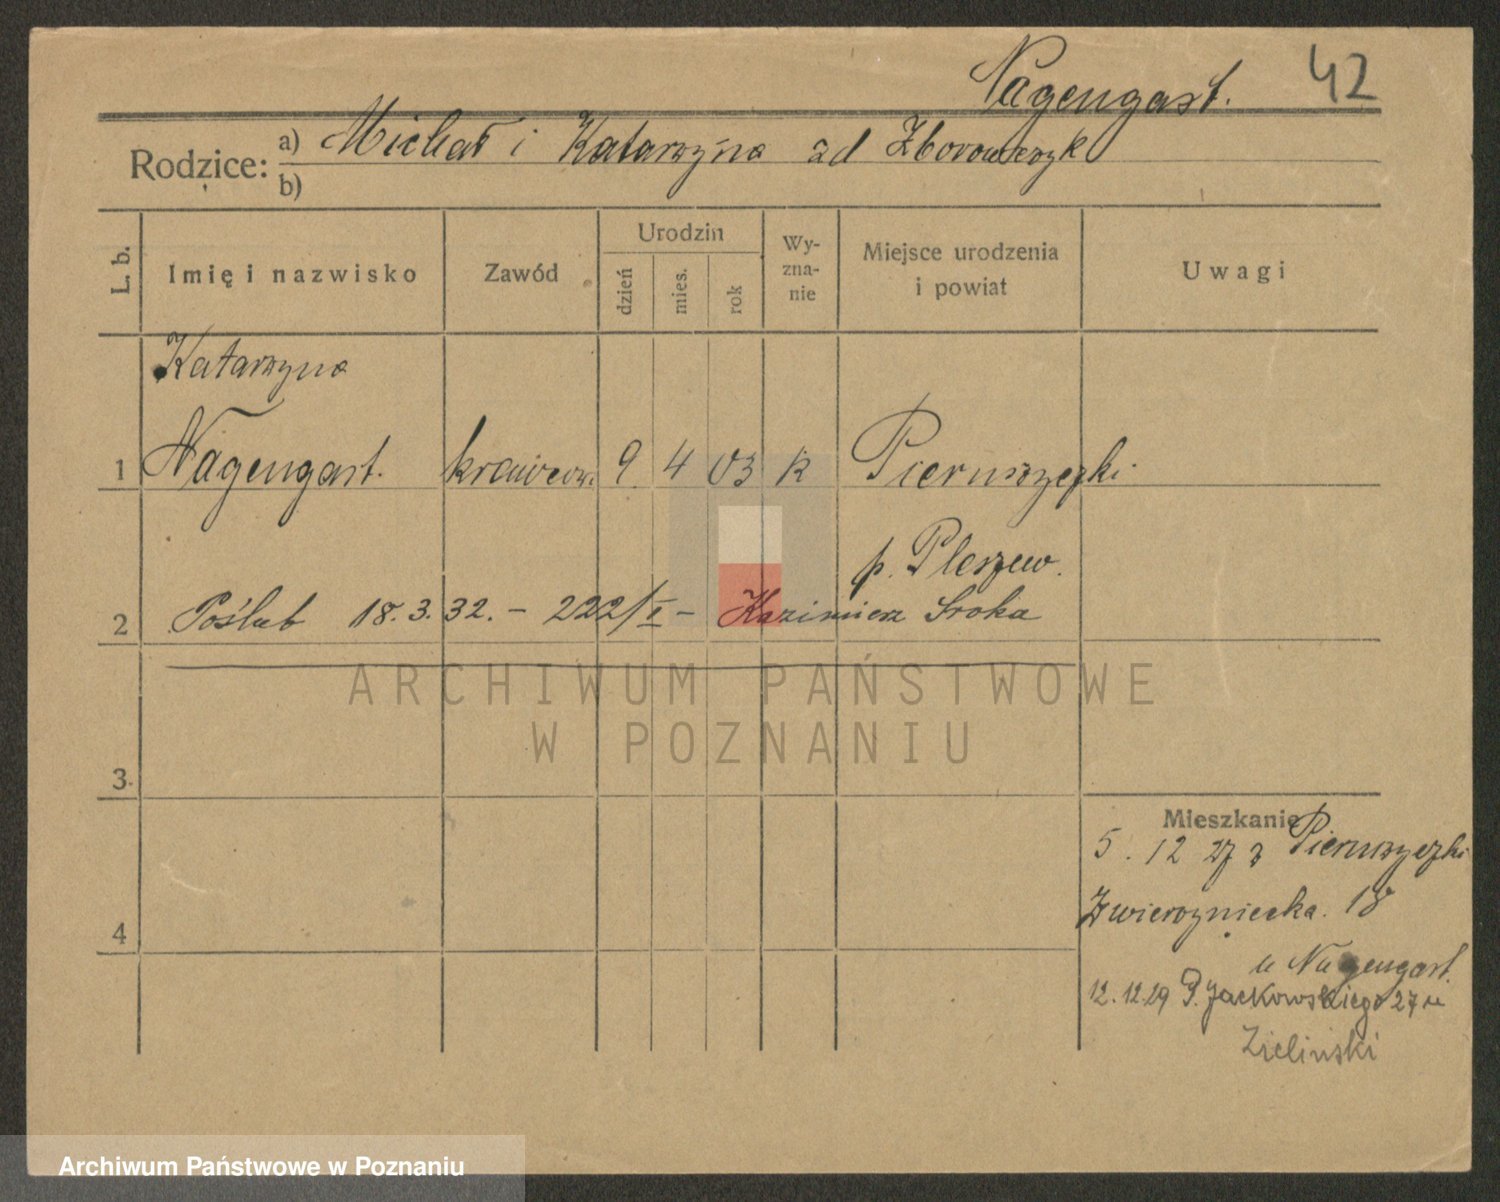 Nagengast. 42
Rodzice: a) Michał i Katarzyna od Zborowczyk
b)
L. b.
Imię i nazwisko
Zawód
Urodzin
dzień
mies.
rok
Wy-
zna-
nie
Miejsce urodzenia
i powiat
Uwagi
Katarzyna
1 Nagengast. krawcow. 9 4 03 R Pieruszyczki.
p. Pleszew.
2 Poślub 18.3.32. – 222/I – Kazimierz Sroka
ARCHIWUM PAŃSTWOWE
W POZNANIU
3
4
Mieszkanie
5. 12 27 z Pieruszyczki
Zwierzyniecka. 18
u Nagengast.
12.12.29 P. Jackowskiego 27 u
Zieliński
Archiwum Państwowe w Poznaniu